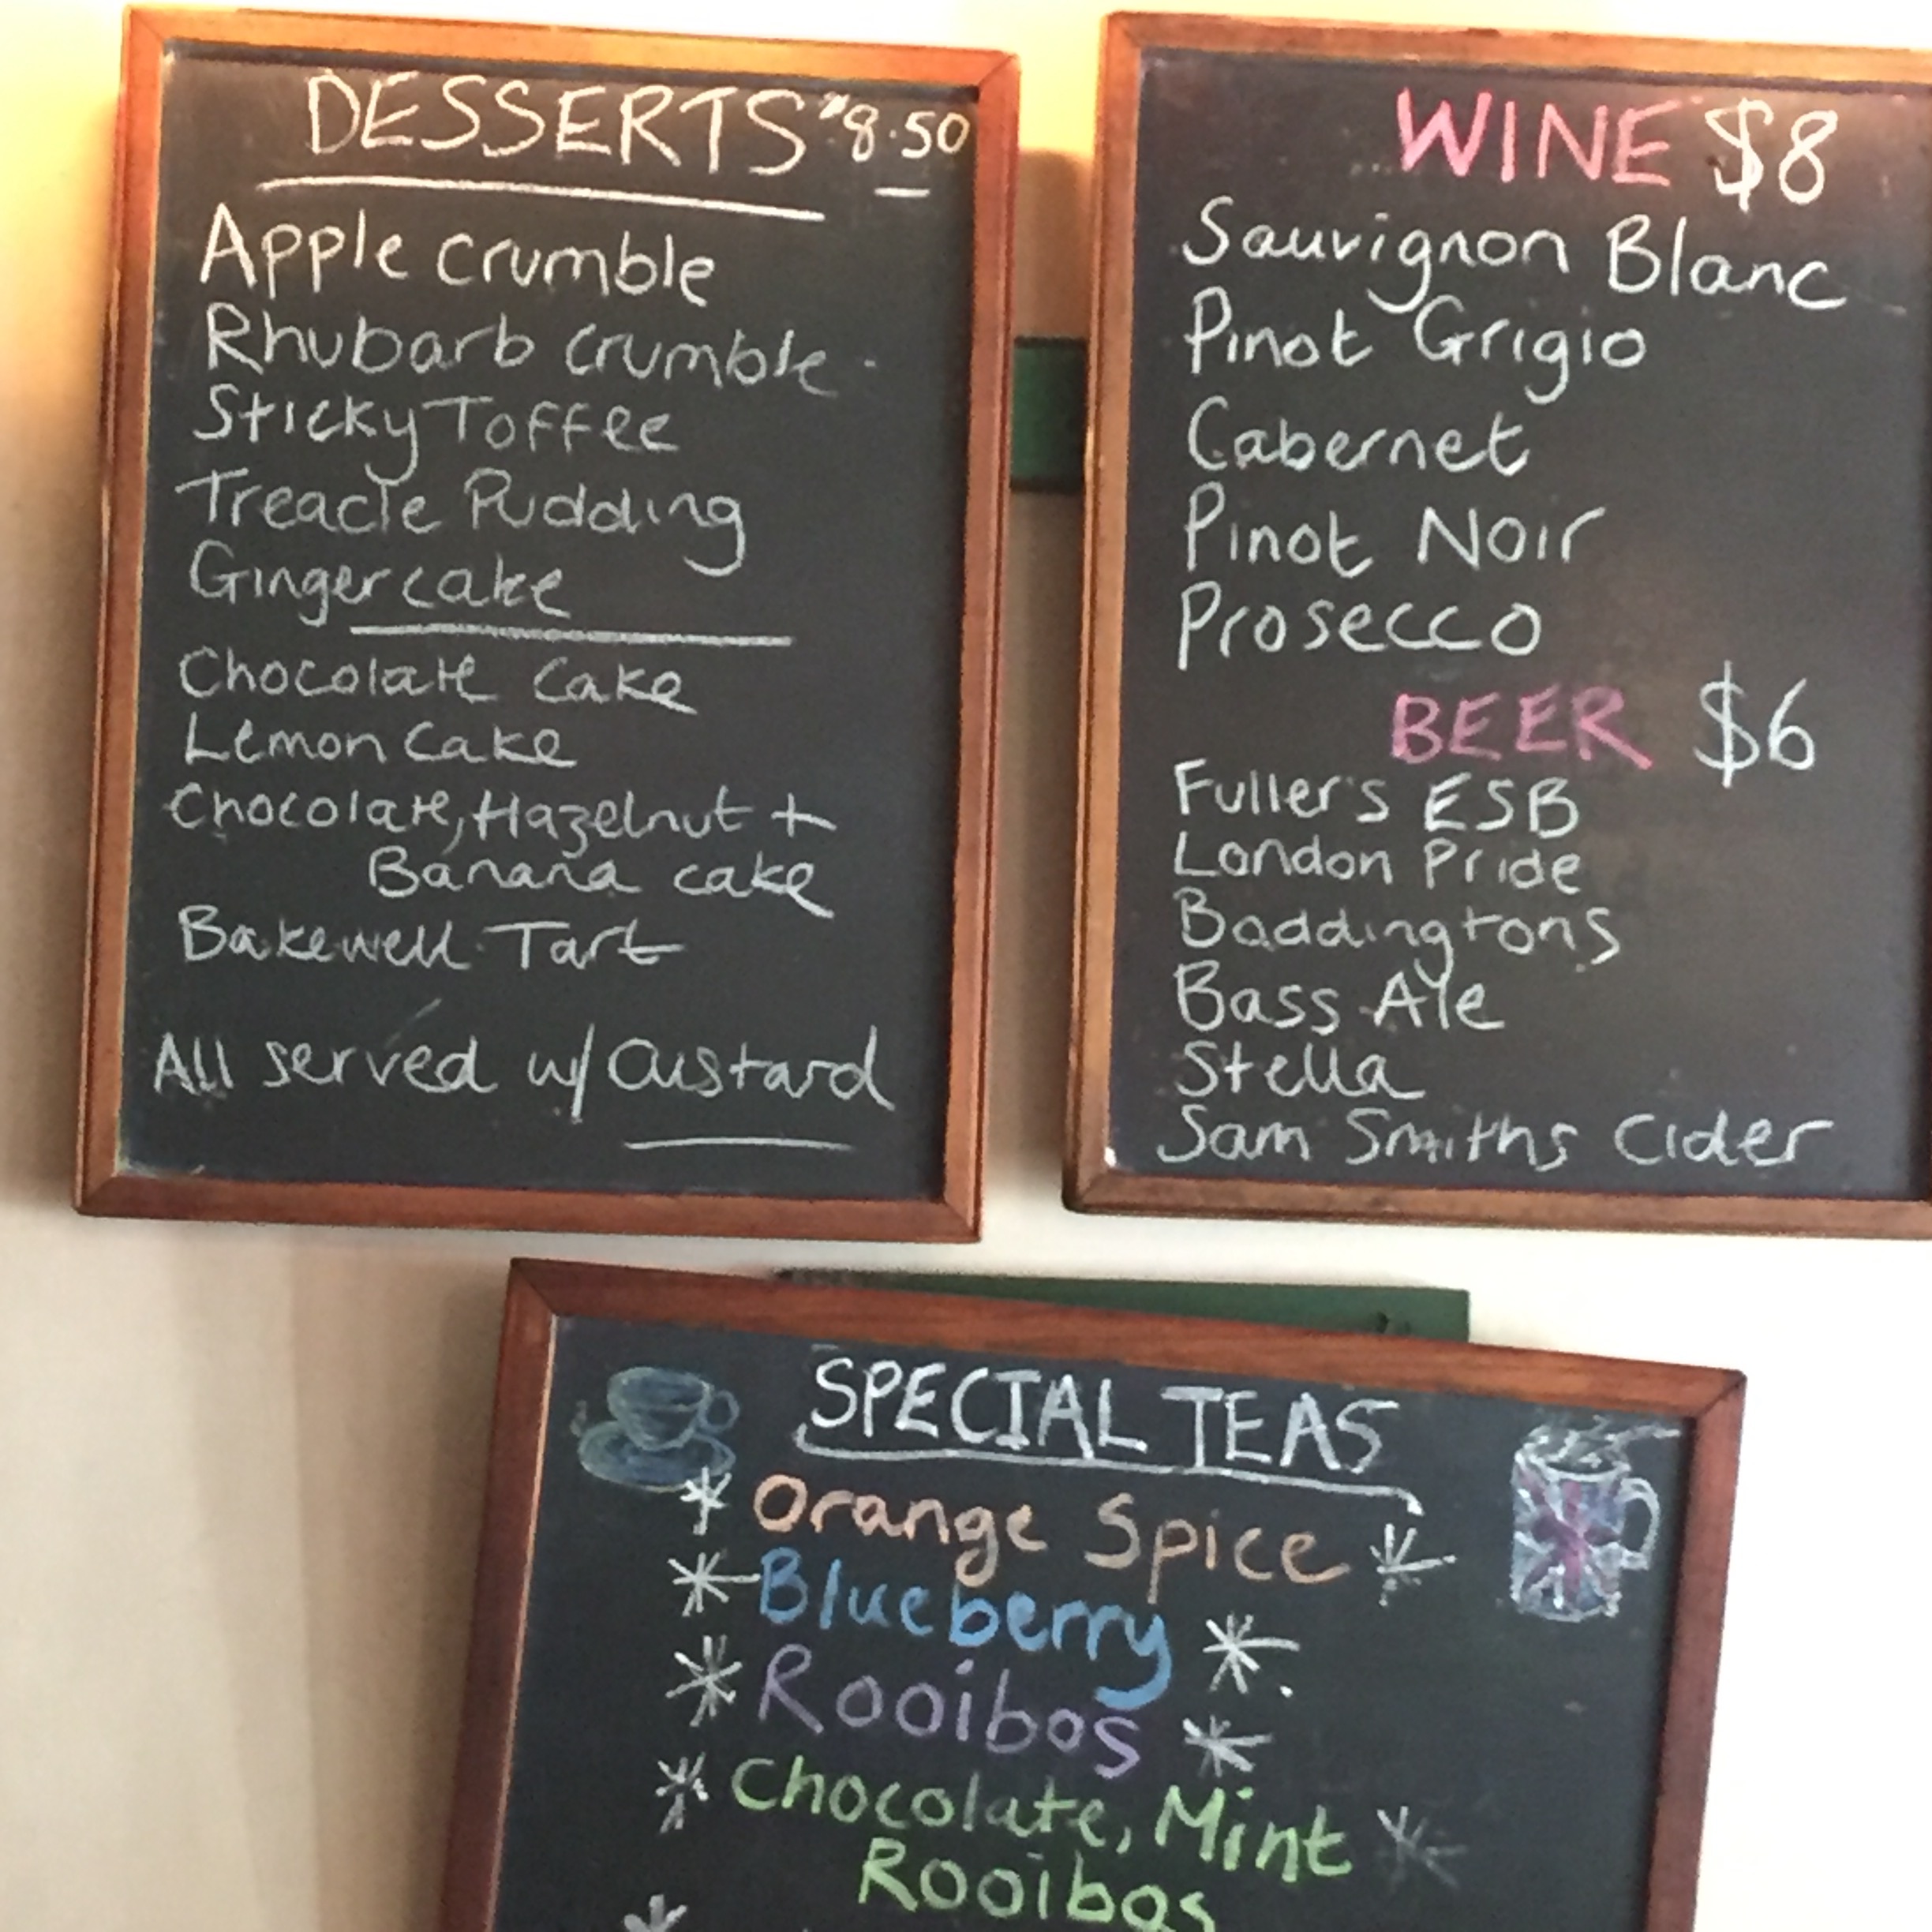 DESSERTS $8.50
Apple Crumble
Rhubarb Crumble
Sticky Toffee
Treacle Pudding
Ginger cake
Chocolate Cake
Lemon Cake
Chocolate, Hazelnut +
Banana cake
Bakewell Tart
All served w/ Custard
WINE $8
Sauvignon Blanc
Pinot Grigio
Cabernet
Pinot Noir
Prosecco
BEER $6
Fuller's ESB
London Pride
Boddingtons
Bass Ale
Stella
Sam Smiths Cider
SPECIAL TEAS
* Orange Spice *
* Blueberry *
* Rooibos *
* Chocolate, Mint *
Rooibos
*